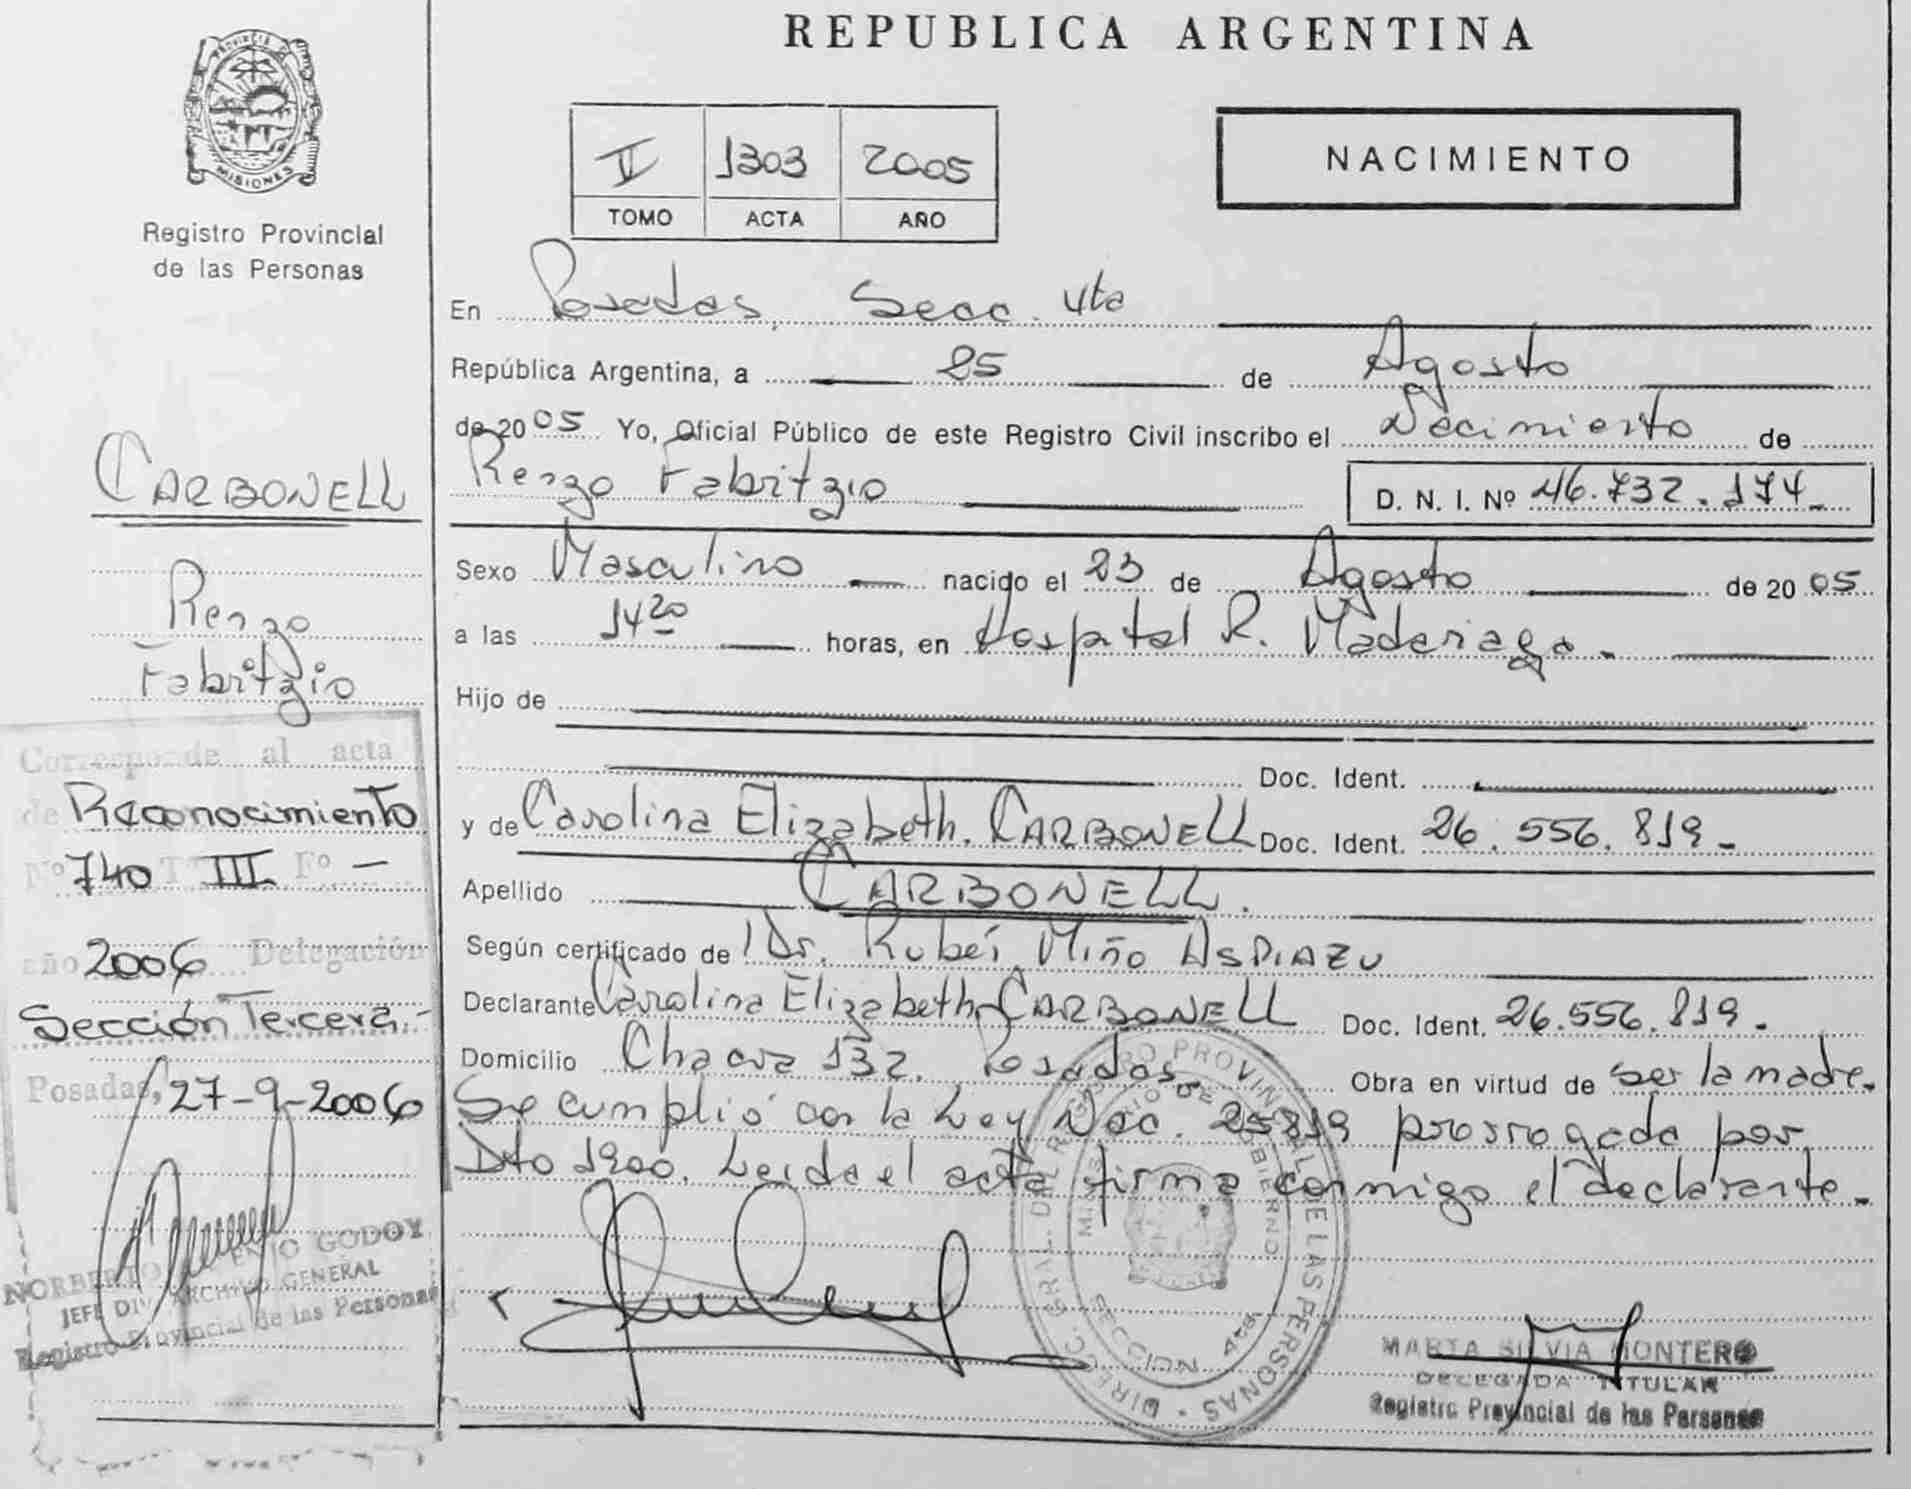 REPUBLICA ARGENTINA
PROVINCIA DE
MISIONES
Registro Provincial
de las Personas
V 1303 2005
TOMO ACTA AÑO
NACIMIENTO
En Posadas, Secc. 4ta
República Argentina, a 25 de Agosto
de 2005 Yo, Oficial Público de este Registro Civil inscribo el Nacimiento de
Renzo Fabritzio
D. N. I. Nº 46.732.174.-
Sexo Masculino nacido el 23 de Agosto de 2005
a las 14 20 horas, en Hospital R. Madariaga.
Hijo de
Doc. Ident.
y de Carolina Elizabeth. CARBONELL Doc. Ident. 26.556.819.-
Apellido CARBONELL.
Según certificado de Dr. Rubén Miño ASPIAZU
Declarante Carolina Elizabeth CARBONELL Doc. Ident. 26.556.819.
Domicilio Chacra 132. Posadas.- Obra en virtud de ser la madre.
Se cumplió con la Ley Nac. 25819 prorrogada por
Dto 1900. Leida el acta firma conmigo el declarante.-
CARBONELL
Renzo
Fabritzio
Corresponde al acta
de Reconocimiento
Nº 740 Tº III Fº -
año 2006 Delegación
Sección Tercera.-
Posadas, 27-9-2006
NORBERTO GODOY
JEFE DIV. ARCHIVO GENERAL
Registro Provincial de las Personas
DIRECC. GRAL. DEL REGISTRO PROVINCIAL DE LAS PERSONAS
MINISTERIO DE GOBIERNO
SECCION 4ta.
MARTA SILVIA MONTERO
DELEGADA TITULAR
Registro Provincial de las Personas